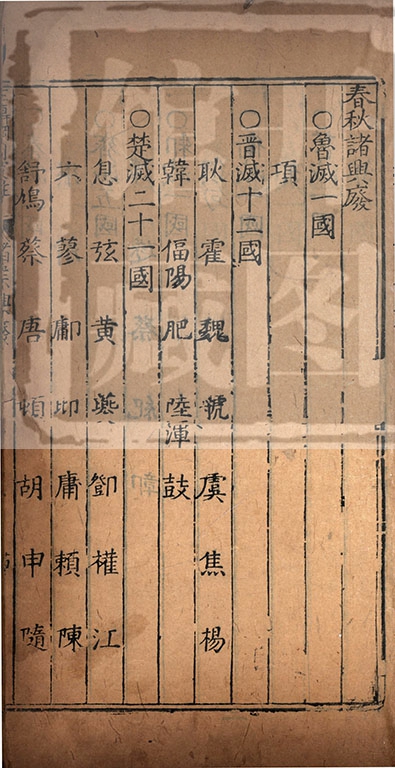 春秋諸興廢
○魯滅一國
項
○晋滅十二國
耿 霍 魏 虢 虞 焦 楊
韓 偪陽 肥 陸渾 鼓
○楚滅二十一國
息 弦 黄 夔 鄧 權 江
六 蓼 庸 賴 陳
舒鳩 蔡 唐 頓 胡 申 隨
藏图